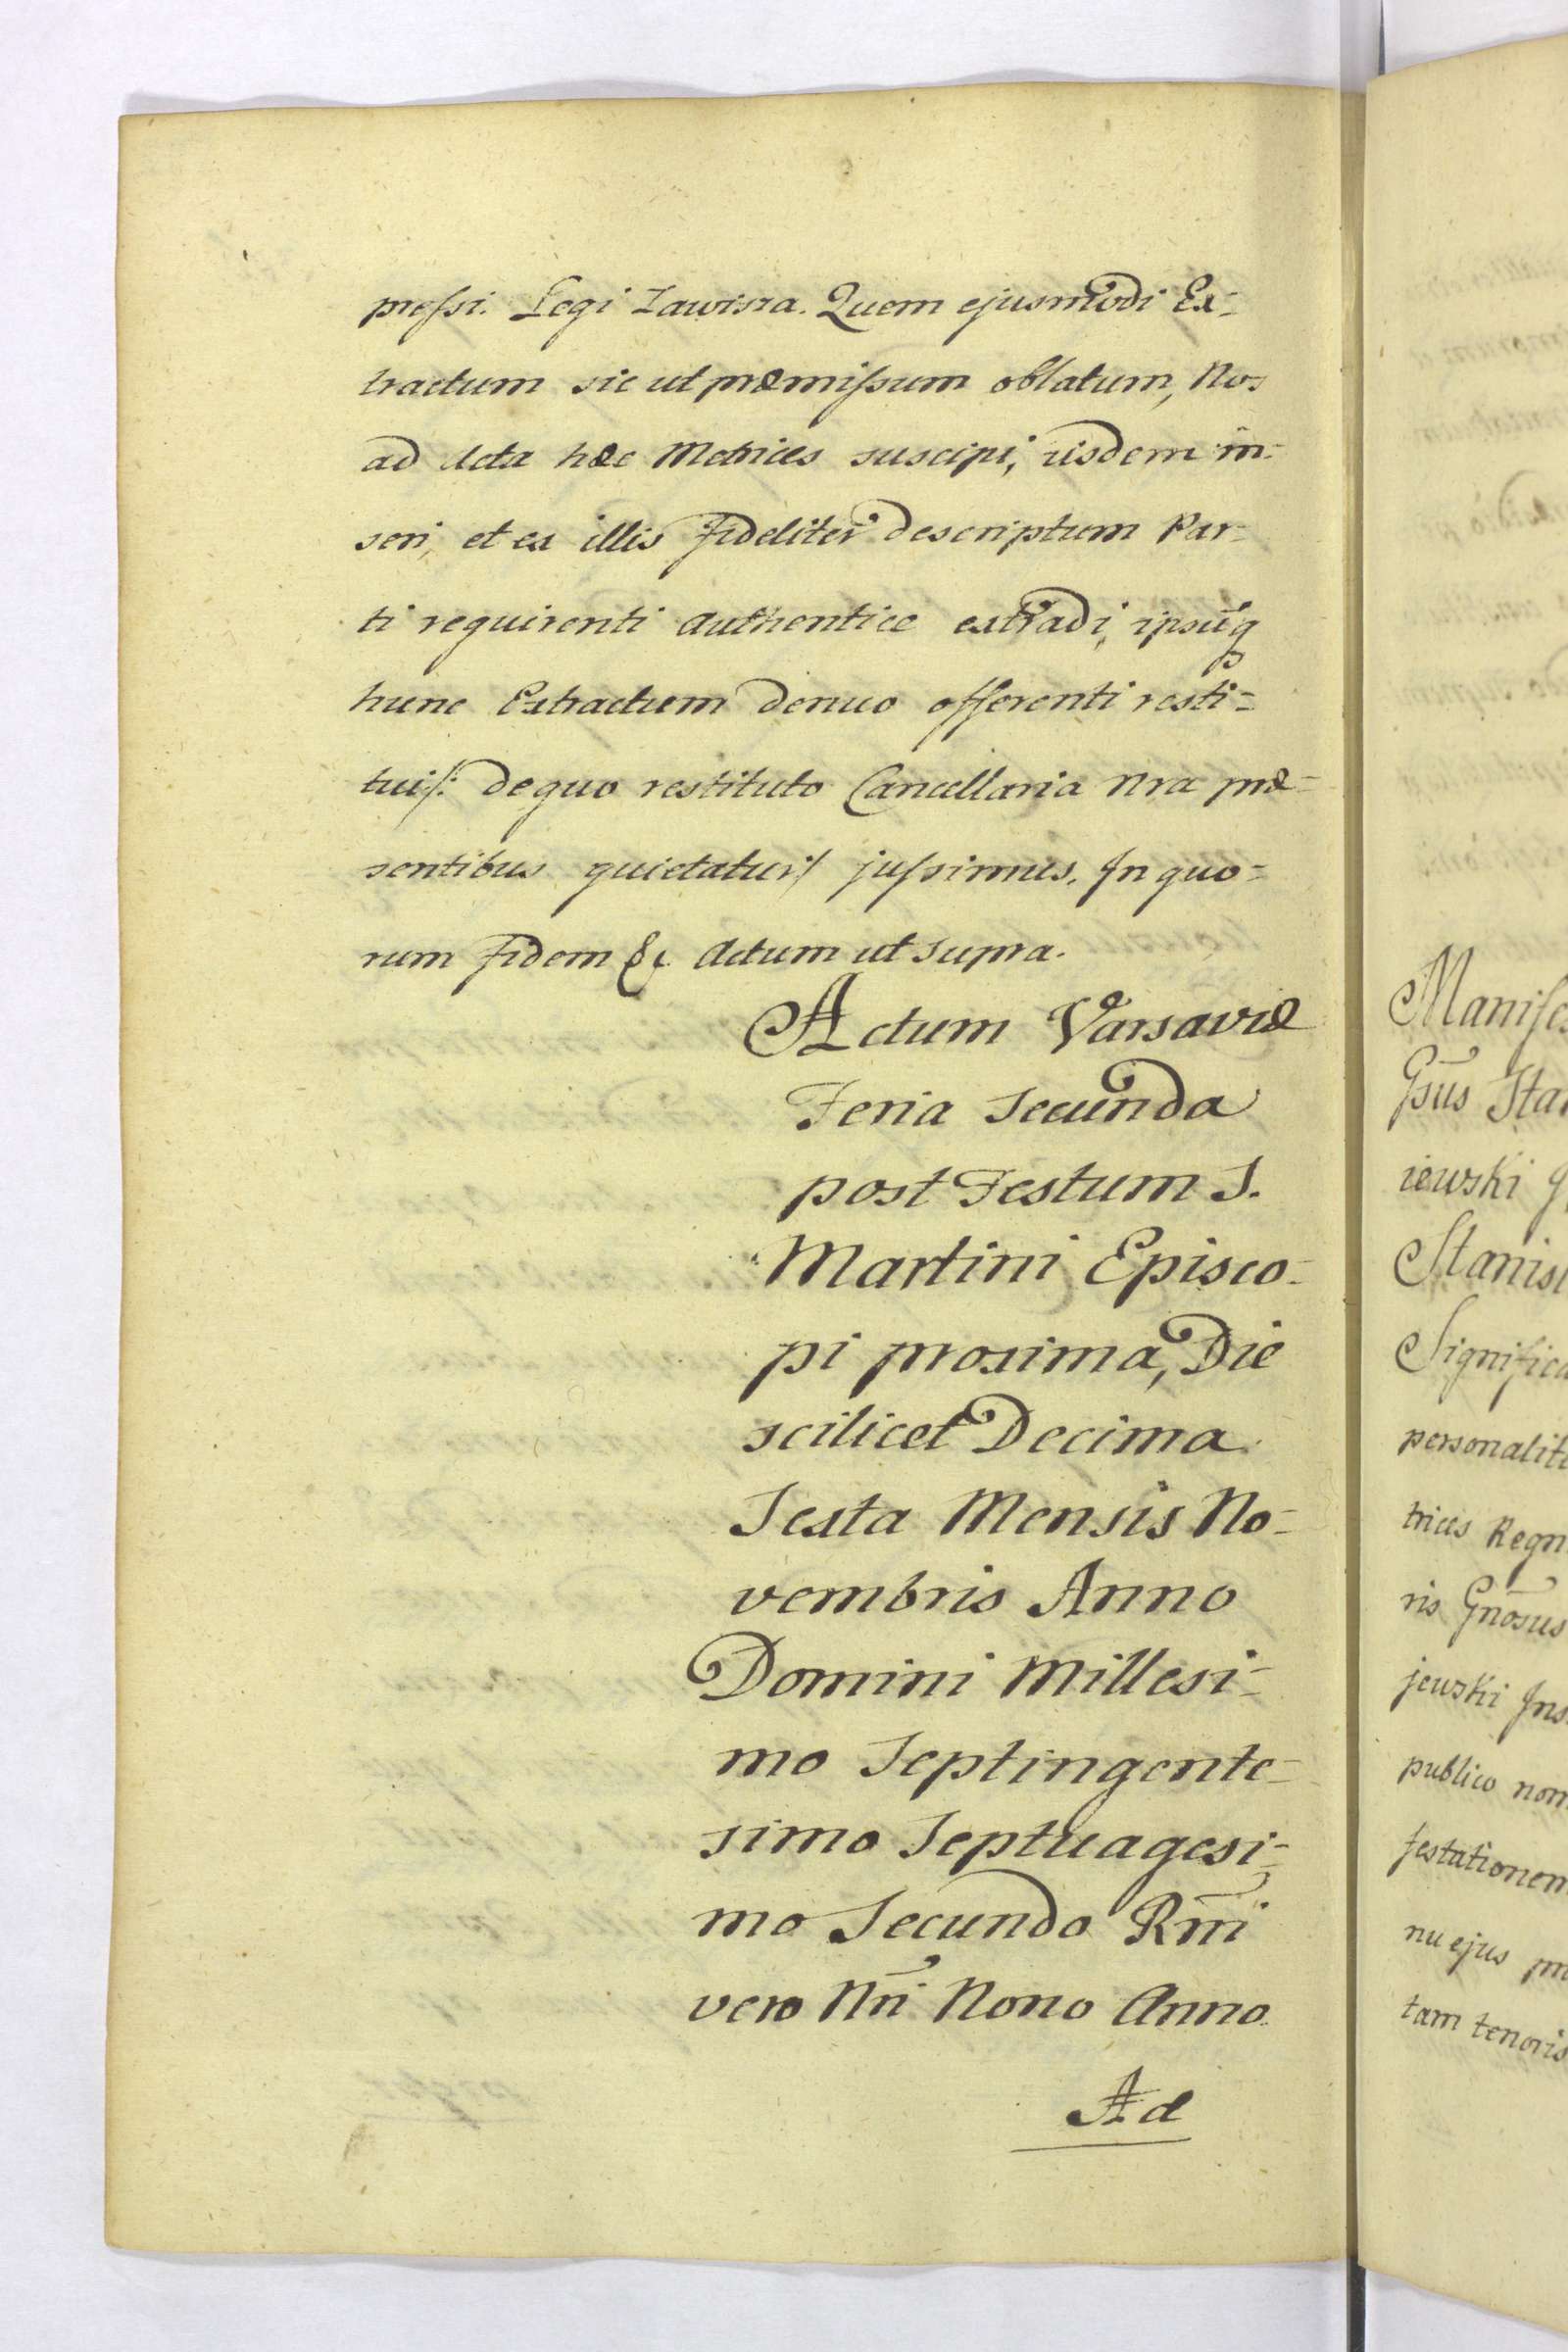 pressi. Legi Zawisza. Quem ejusmodi Ex-
tractum sic ut præmissum oblatum, Nos
ad Acta hæc Metrices suscipi, iisdem in-
seri, et ex illis fideliter descriptum Par-
ti requirenti authentice extradi, ipsūq
hunc Extractum denuo offerenti resti=
tui /: de quo restituto Cancellaria Nra præ=
sentibus quietatur :/ jussimus. In quo=
rum fidem &c. Actum ut supra.
Actum Varsaviæ
Feria Secunda
post Festum S.
Martini Episco-
pi proxima, Die
scilicet Decima
Sexta Mensis No-
vembris Anno
Domini Millesi-
mo Septingente-
simo Septuagesi-
mo Secundo Rm̄i
vero Nri Nono Anno.
Ad
Manifes
Gsūs Sta
iewski
Stanisl
Significa
personalit
trices Regn
ris Gnōsus
jewski Ins
publico nom
festationem
nu ejus
tam tenoris